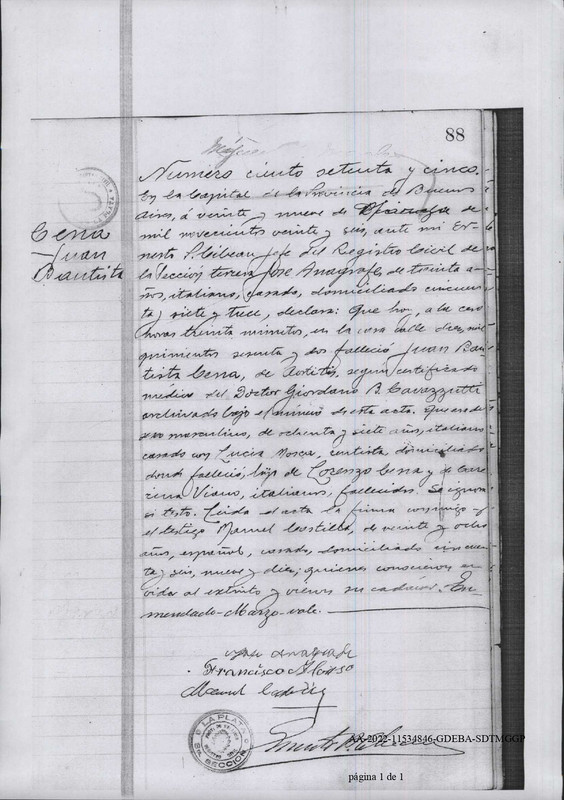 88
Numero ciento setenta y cinco.
En la Capital de la Provincia de Buenos
Aires, á veinte y nueve de de
mil novecientos veinte y seis, ante mi Er-
nesto P. Jefe del Registro Civil de
la Sección tercera José de treinta a-
ños, italiano, casado, domiciliado cincuen-
ta y siete y trece, declara: Que hoy, a las cero
horas treinta minutos, en la casa calle diez, mil
quinientos sesenta y dos falleció Juan Bau-
tista Cena, de Aortitis, según certificado
médico del Doctor Giordano B. Cavazzutti
archivado bajo el número de esta acta. Que era de
sexo masculino, de ochenta y siete años, italiano
casado con Lucia Mosca, rentista, domiciliado
donde falleció, hijo de Lorenzo Cena y de
Viano, italianos, fallecidos. Se ignora
si testó. Leida el acta la firma conmigo y
el testigo Manuel Castilla, de veinte y ocho
años, español, casado, domiciliado cincuen-
ta y seis, nueve y diez; quienes conocieron en
vida al extinto y vieron su cadáver. En-
mendado-Marzo-vale.
Cena
Juan
Bautista
José
Francisco
Manuel
LA PLATA
SECCIÓN
AA-2022-11534846-GDEBA-SDTMGGP
página 1 de 1